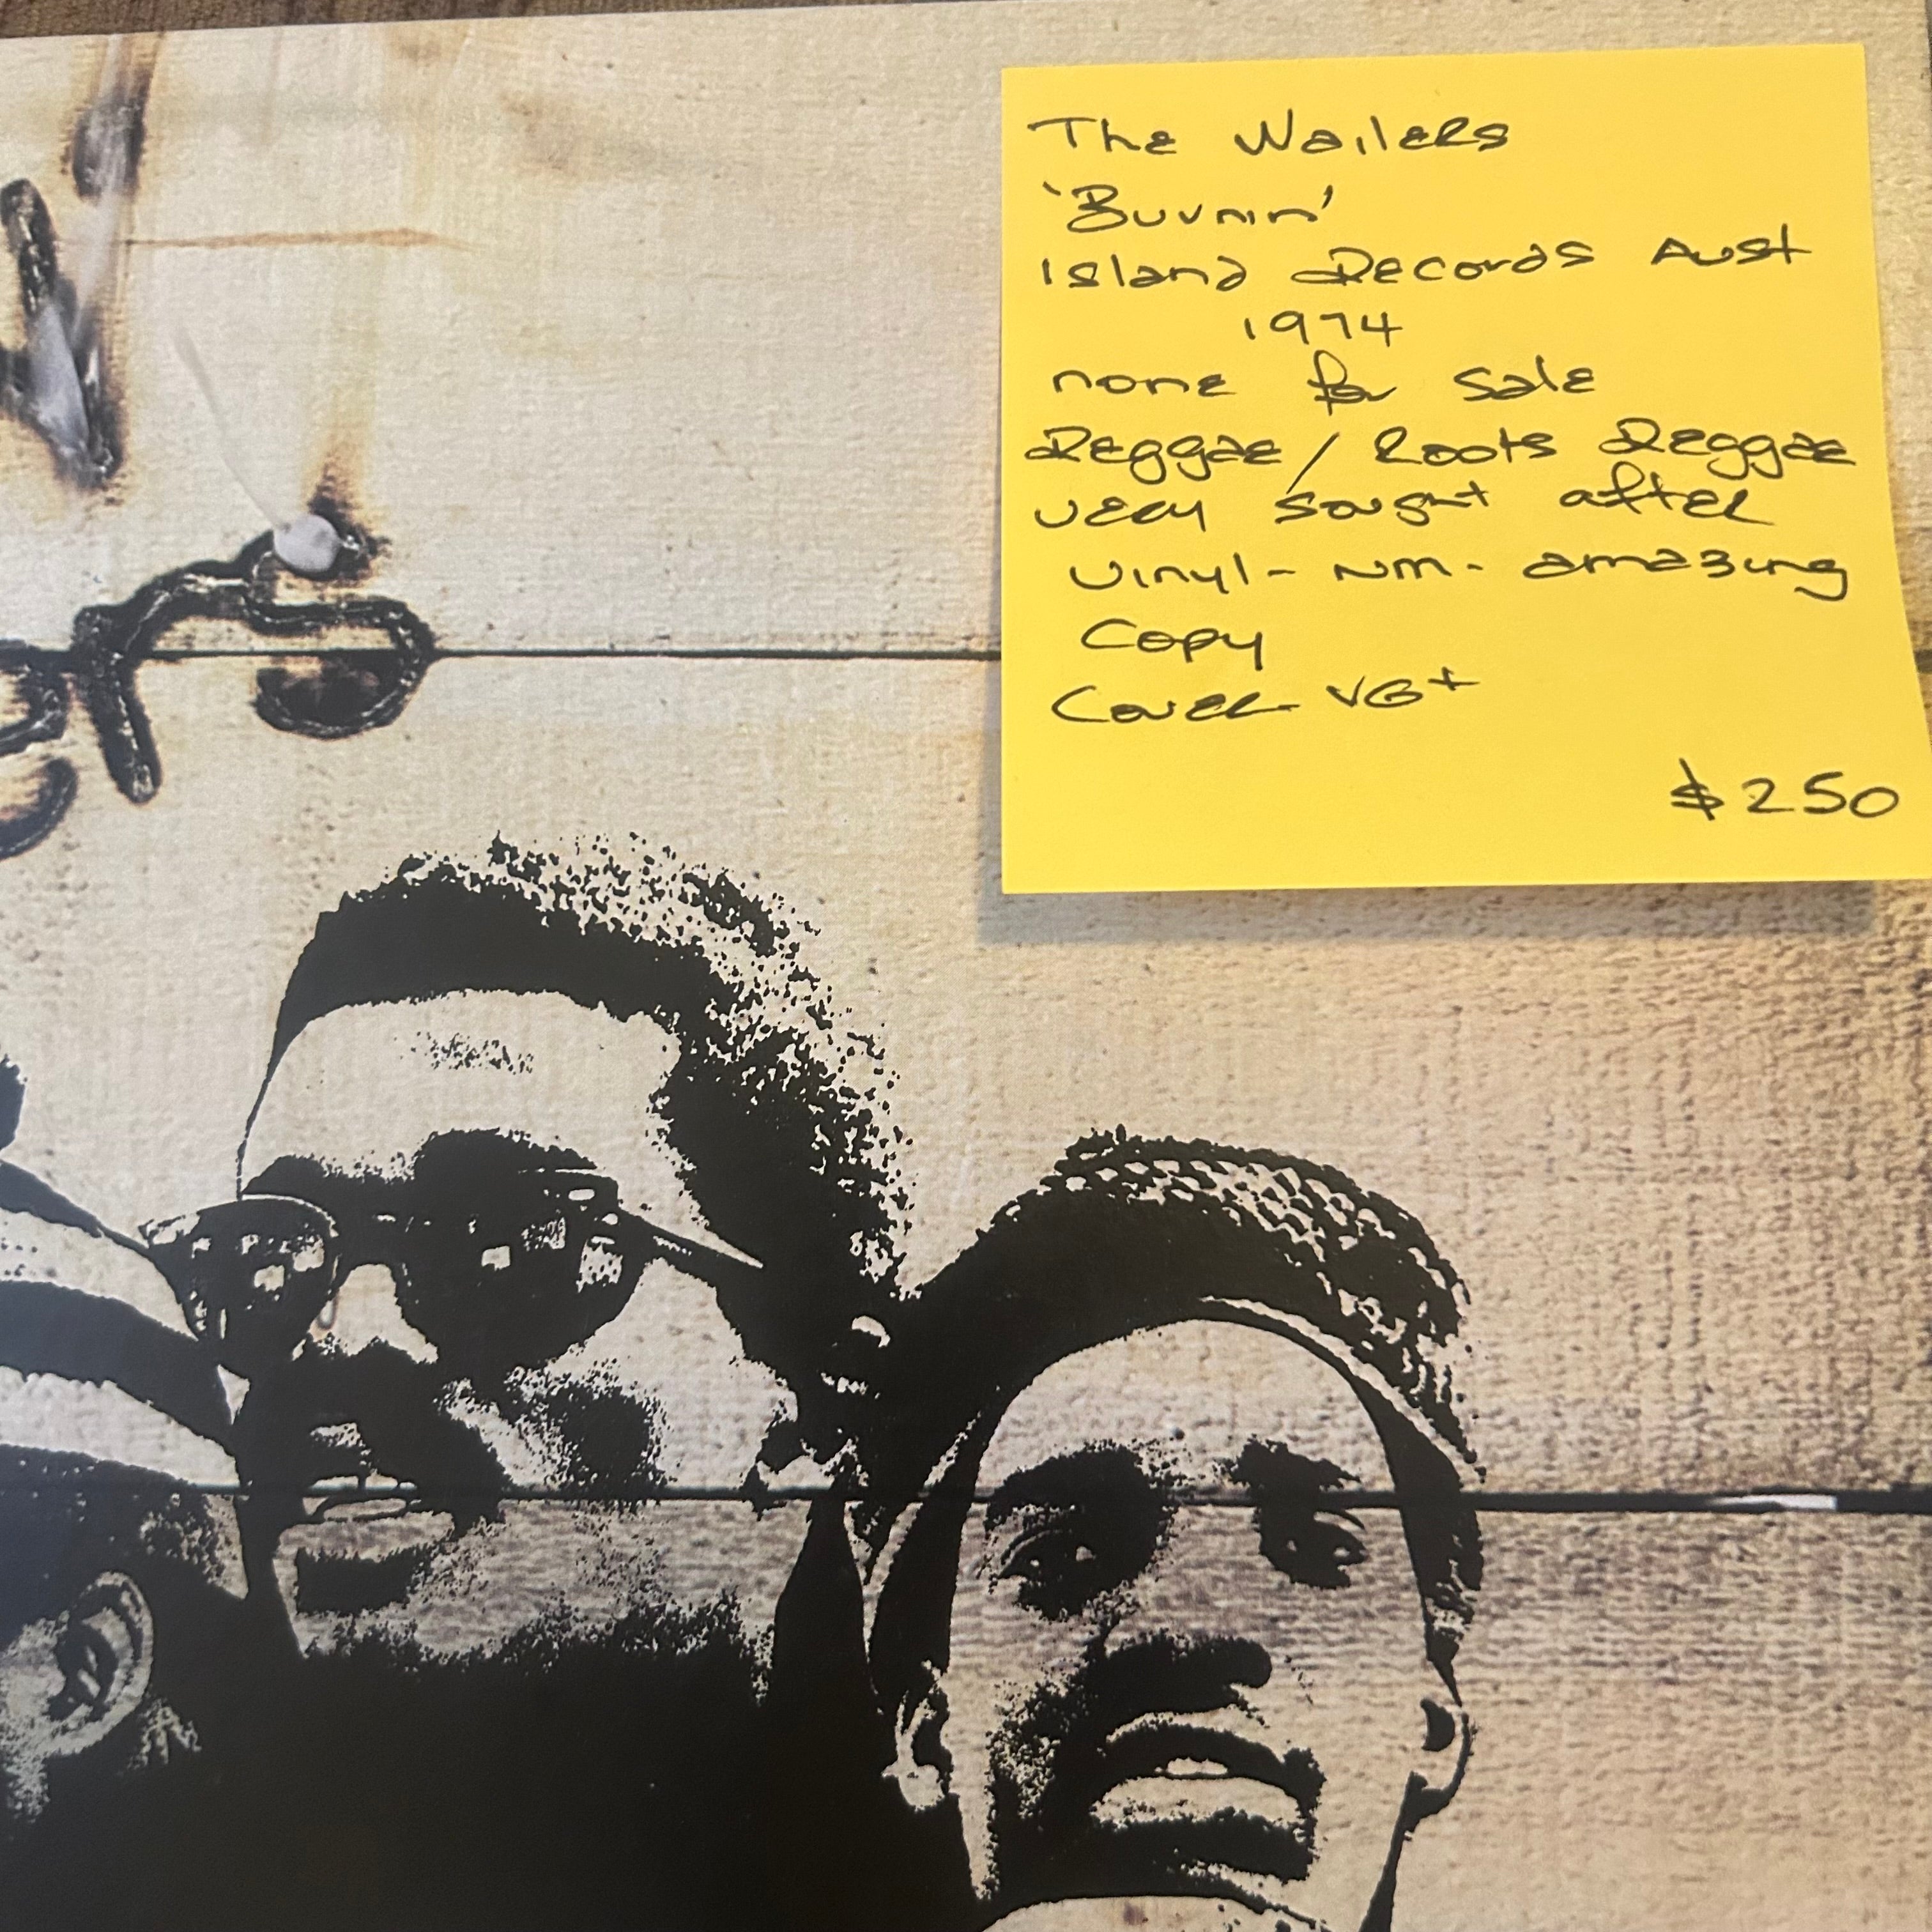 The Wailers
'Burnin'
Island Records Aust
1974
none for sale
Reggae / Roots Reggae
very sought after
Vinyl - NM - amazing
Copy
Cover VG+
$250